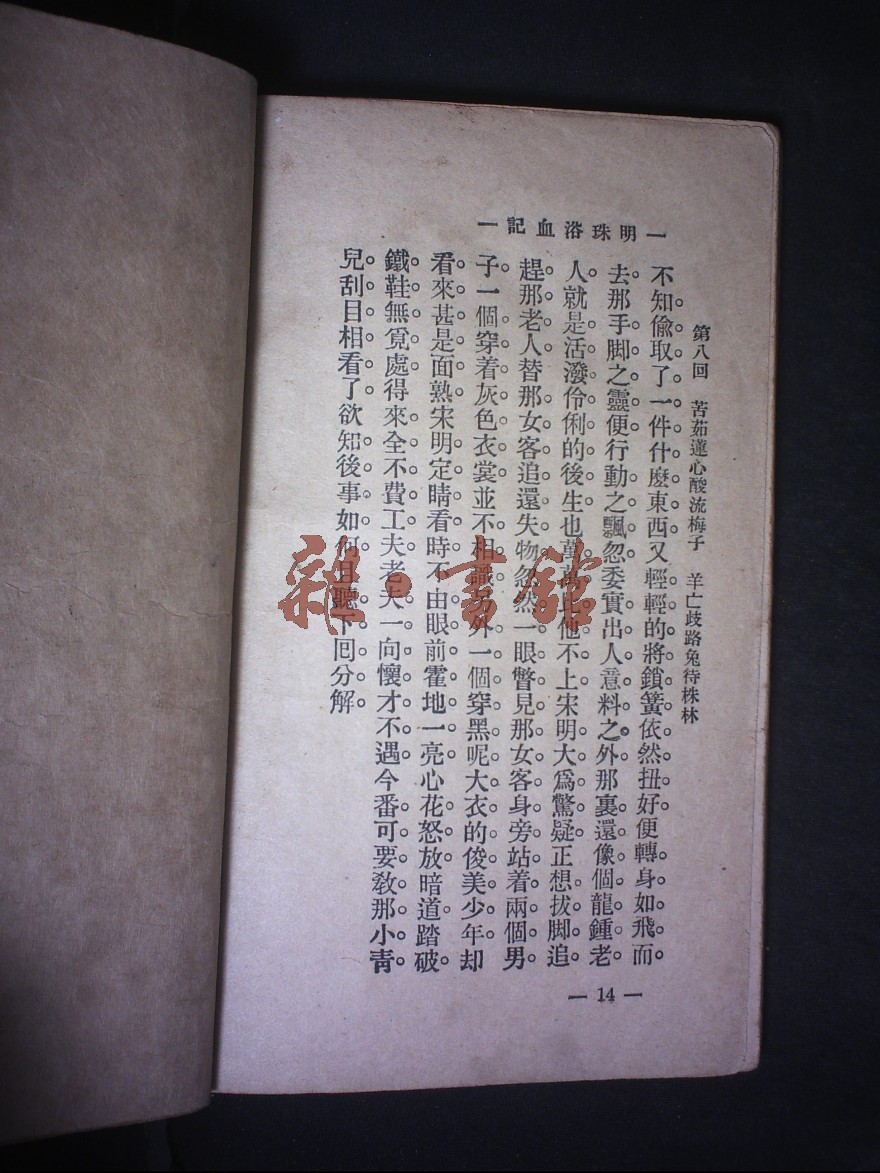 明珠浴血記
第八回　苦茹蓮心酸流梅子　羊亡歧路兔待株林
不知偷取了一件什麼東西又輕輕的將鎖簧依然扭好便轉身如飛而
去那手脚之靈便行動之飄忽委實出人意料之外那裏還像個龍鍾老
人就是活潑伶俐的後生也萬萬比他不上宋明大爲驚疑正想拔脚追
趕那老人替那女客追還失物忽然一眼瞥見那女客身旁站着兩個男
子一個穿着灰色衣裳並不相識另外一個穿黑呢大衣的俊美少年却
看來甚是面熟宋明定睛看時不由眼前霍地一亮心花怒放暗道踏破
鐵鞋無覓處得來全不費工夫老夫一向懷才不遇今番可要教那小青
兒刮目相看了欲知後事如何且聽下回分解
— 14 —
雜·書館